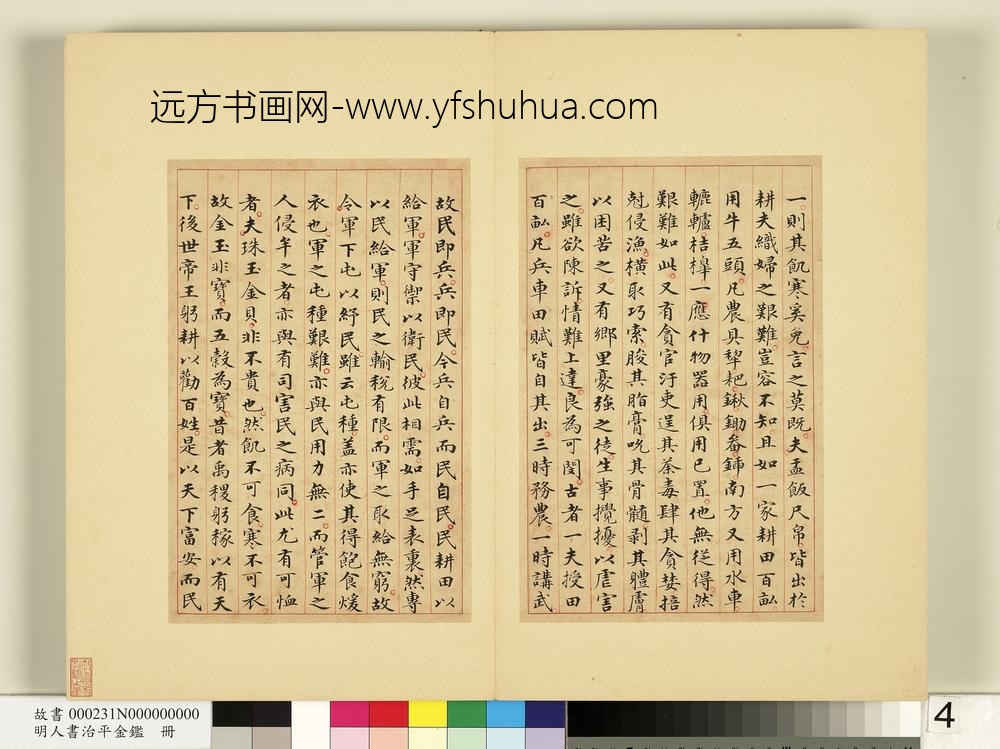 远方书画网-www.yfshuhua.com
一則其飢寒奚免言之莫既夫盂飯尺帛皆出於
耕夫織婦之艱難豈容不知且如一家耕田百畝
用牛五頭凡農具犁耙鍬鋤畚鍤南方又用水車
轆轤桔槔一應什物器用俱用已置他無從得然
艱難如此又有貪官汙吏逞其荼毒肆其貪婪掊
尅侵漁橫取巧索朘其脂膏吮其骨髓剥其軆膚
以困苦之又有鄉里豪強之徒生事攪擾以虐害
之雖欲陳訴情難上達良為可閔古者一夫授田
百畝凡兵車田賦皆自其出三時務農一時講武
故民即兵兵即民今兵自兵而民自民民耕田以
給軍軍守禦以衛民彼此相需如手足表裏然專
以民給軍則民之輸稅有限而軍之取給無窮故
令軍下屯以紓民雖云屯種蓋亦使其得飽食煖
衣也軍之屯種艱難亦與民用力無二而管軍之
人侵牟之者亦與有司害民之病同此尤有可恤
者夫珠玉金貝非不貴也然飢不可食寒不可衣
故金玉非寶而五穀為寶昔者禹稷躬稼以有天
下後世帝王躬耕以勸百姓是以天下富安而民
故書 000231N000000000
明人書治平金鑑 冊
4